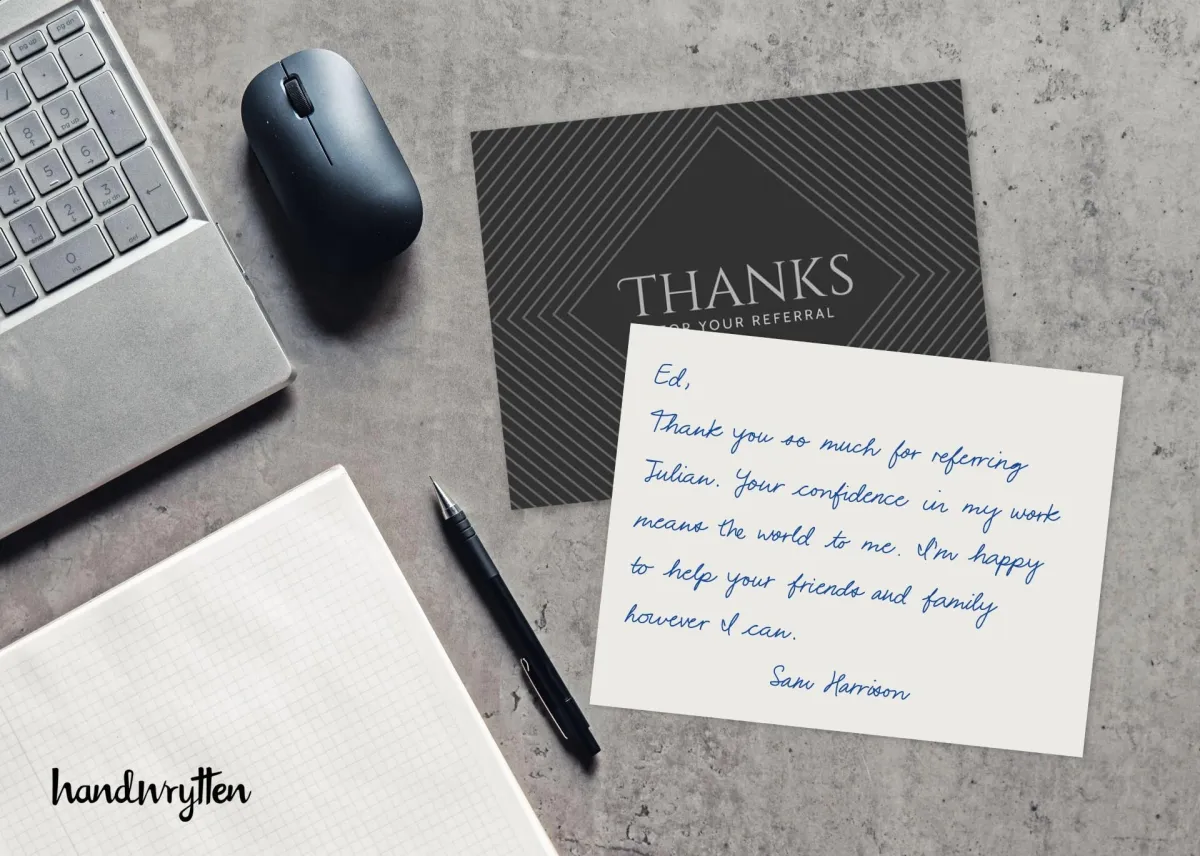 THANKS
FOR YOUR REFERRAL
Ed,
Thank you so much for referring
Julian. Your confidence in my work
means the world to me. I'm happy
to help your friends and family
however I can.
Sam Harrison
handwrytten
pg up
pg dn
/
*
-
7
8
9
pg up
+
4
5
6
1
end
2
3
pg dn
0
ins
.
del